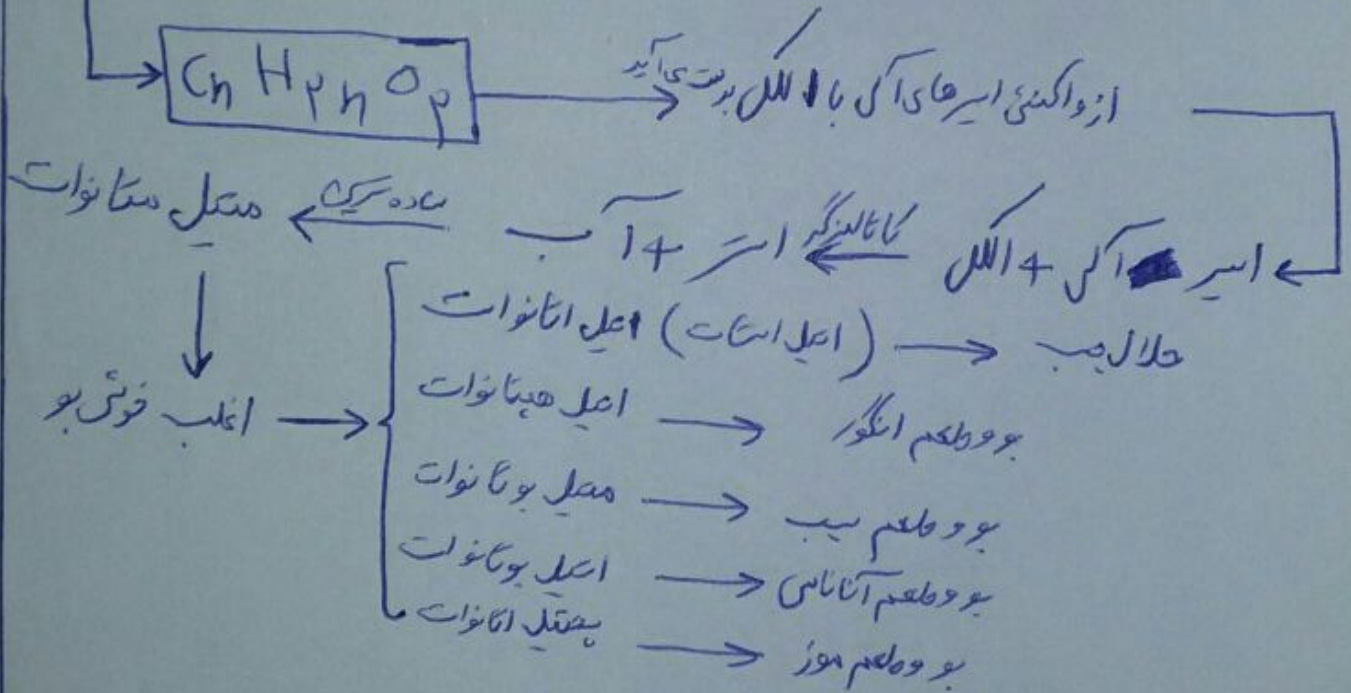 CnH۲nO۲ → از واکنش اسیدهای آلی با الکل بدست می‌آید
اسید آلی + الکل ← کاتالیزگر استر + آب ← ساده‌ترین متیل متانوات
اغلب خوش بو
اتیل اتانوات (اتیل استات) → حلال چسب
اتیل هپتانوات → بو و طعم انگور
متیل بوتانوات → بو و طعم سیب
اتیل بوتانوات → بو و طعم آناناس
پنتیل اتانوات → بو و طعم موز